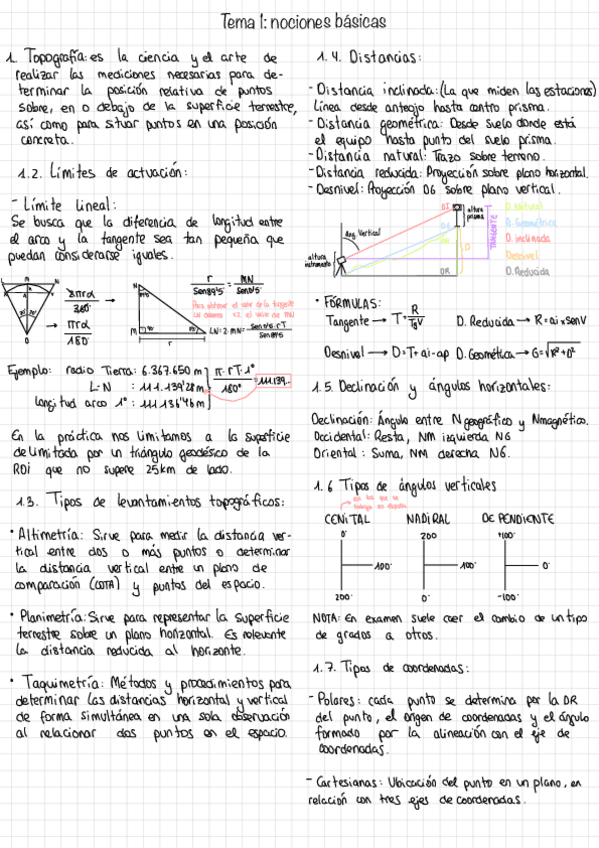 Tema 1: nociones básicas
1. Topografía: es la ciencia y el arte de
realizar las mediciones necesarias para de-
terminar la posición relativa de puntos
sobre, en o debajo de la superficie terrestre,
así como para situar puntos en una posición
concreta.
1.2. Límites de actuación:
- Límite lineal:
Se busca que la diferencia de longitud entre
el arco y la tangente sea tan pequeña que
puedan considerarse iguales.
2πrα
360°
πrα
180°
N
M
r
r/Sen89'5 = MN/Sen0'5
Para obtener el valor de la tangente
x2 el valor de MN
LN=2·MN= Sen0'5·rT/Sen89'5
Ejemplo: radio Tierra: 6.367.650 m
L-N : 111.139'28 m
longitud arco 1° : 111.136'46 m
π·rT·1°/180° = 111.139..
En la práctica nos limitamos a la superficie
delimitada por un triángulo geodésico de la
ROi que no supere 25km de lado.
1.3. Tipos de levantamientos topográficos:
• Altimetría: Sirve para medir la distancia ver-
tical entre dos o más puntos o determinar
la distancia vertical entre un plano de
comparación (COTA) y puntos del espacio.
• Planimetría: Sirve para representar la superficie
terrestre sobre un plano horizontal. Es relevante
la distancia reducida al horizonte.
• Taquimetría: Métodos y procedimientos para
determinar las distancias horizontal y vertical
de forma simultánea en una sola observación
al relacionar dos puntos en el espacio.
1.4. Distancias:
- Distancia inclinada: (La que miden las estaciones)
Línea desde anteojo hasta centro prisma.
- Distancia geométrica: Desde suelo donde está
el equipo hasta punto del suelo prisma.
- Distancia natural: Trazo sobre terreno.
- Distancia reducida: Proyección sobre plano horizontal.
- Desnivel: Proyección DG sobre plano vertical.
Ang. Vertical
altura
instrumento
DI
DR
D
altura
prisma
TANGENTE
D. Natural
D. Geométrica
D. inclinada
Desnivel
D. Reducida
• FÓRMULAS:
Tangente → T= R/TgV D. Reducida → R= di x senV
Desnivel → D=T+ai-ap D. Geométrica → G=√R²+D²
1.5. Declinación y ángulos horizontales:
Declinación: Ángulo entre N geográfico y N magnético.
Occidental: Resta, NM izquierda NG
Oriental : Suma, NM derecha NG.
1.6 Tipos de ángulos verticales
CENITAL NADIRAL DE PENDIENTE
0° 200 +100°
100° 100° 0
200° 0° -100°
NOTA: En examen suele caer el cambio de un tipo
de grados a otros.
1.7. Tipos de coordenadas:
- Polares: cada punto se determina por la DR
del punto, el origen de coordenadas y el ángulo
formado por la alineación con el eje de
coordenadas.
- Cartesianas: Ubicación del punto en un plano, en
relación con tres ejes de coordenadas.